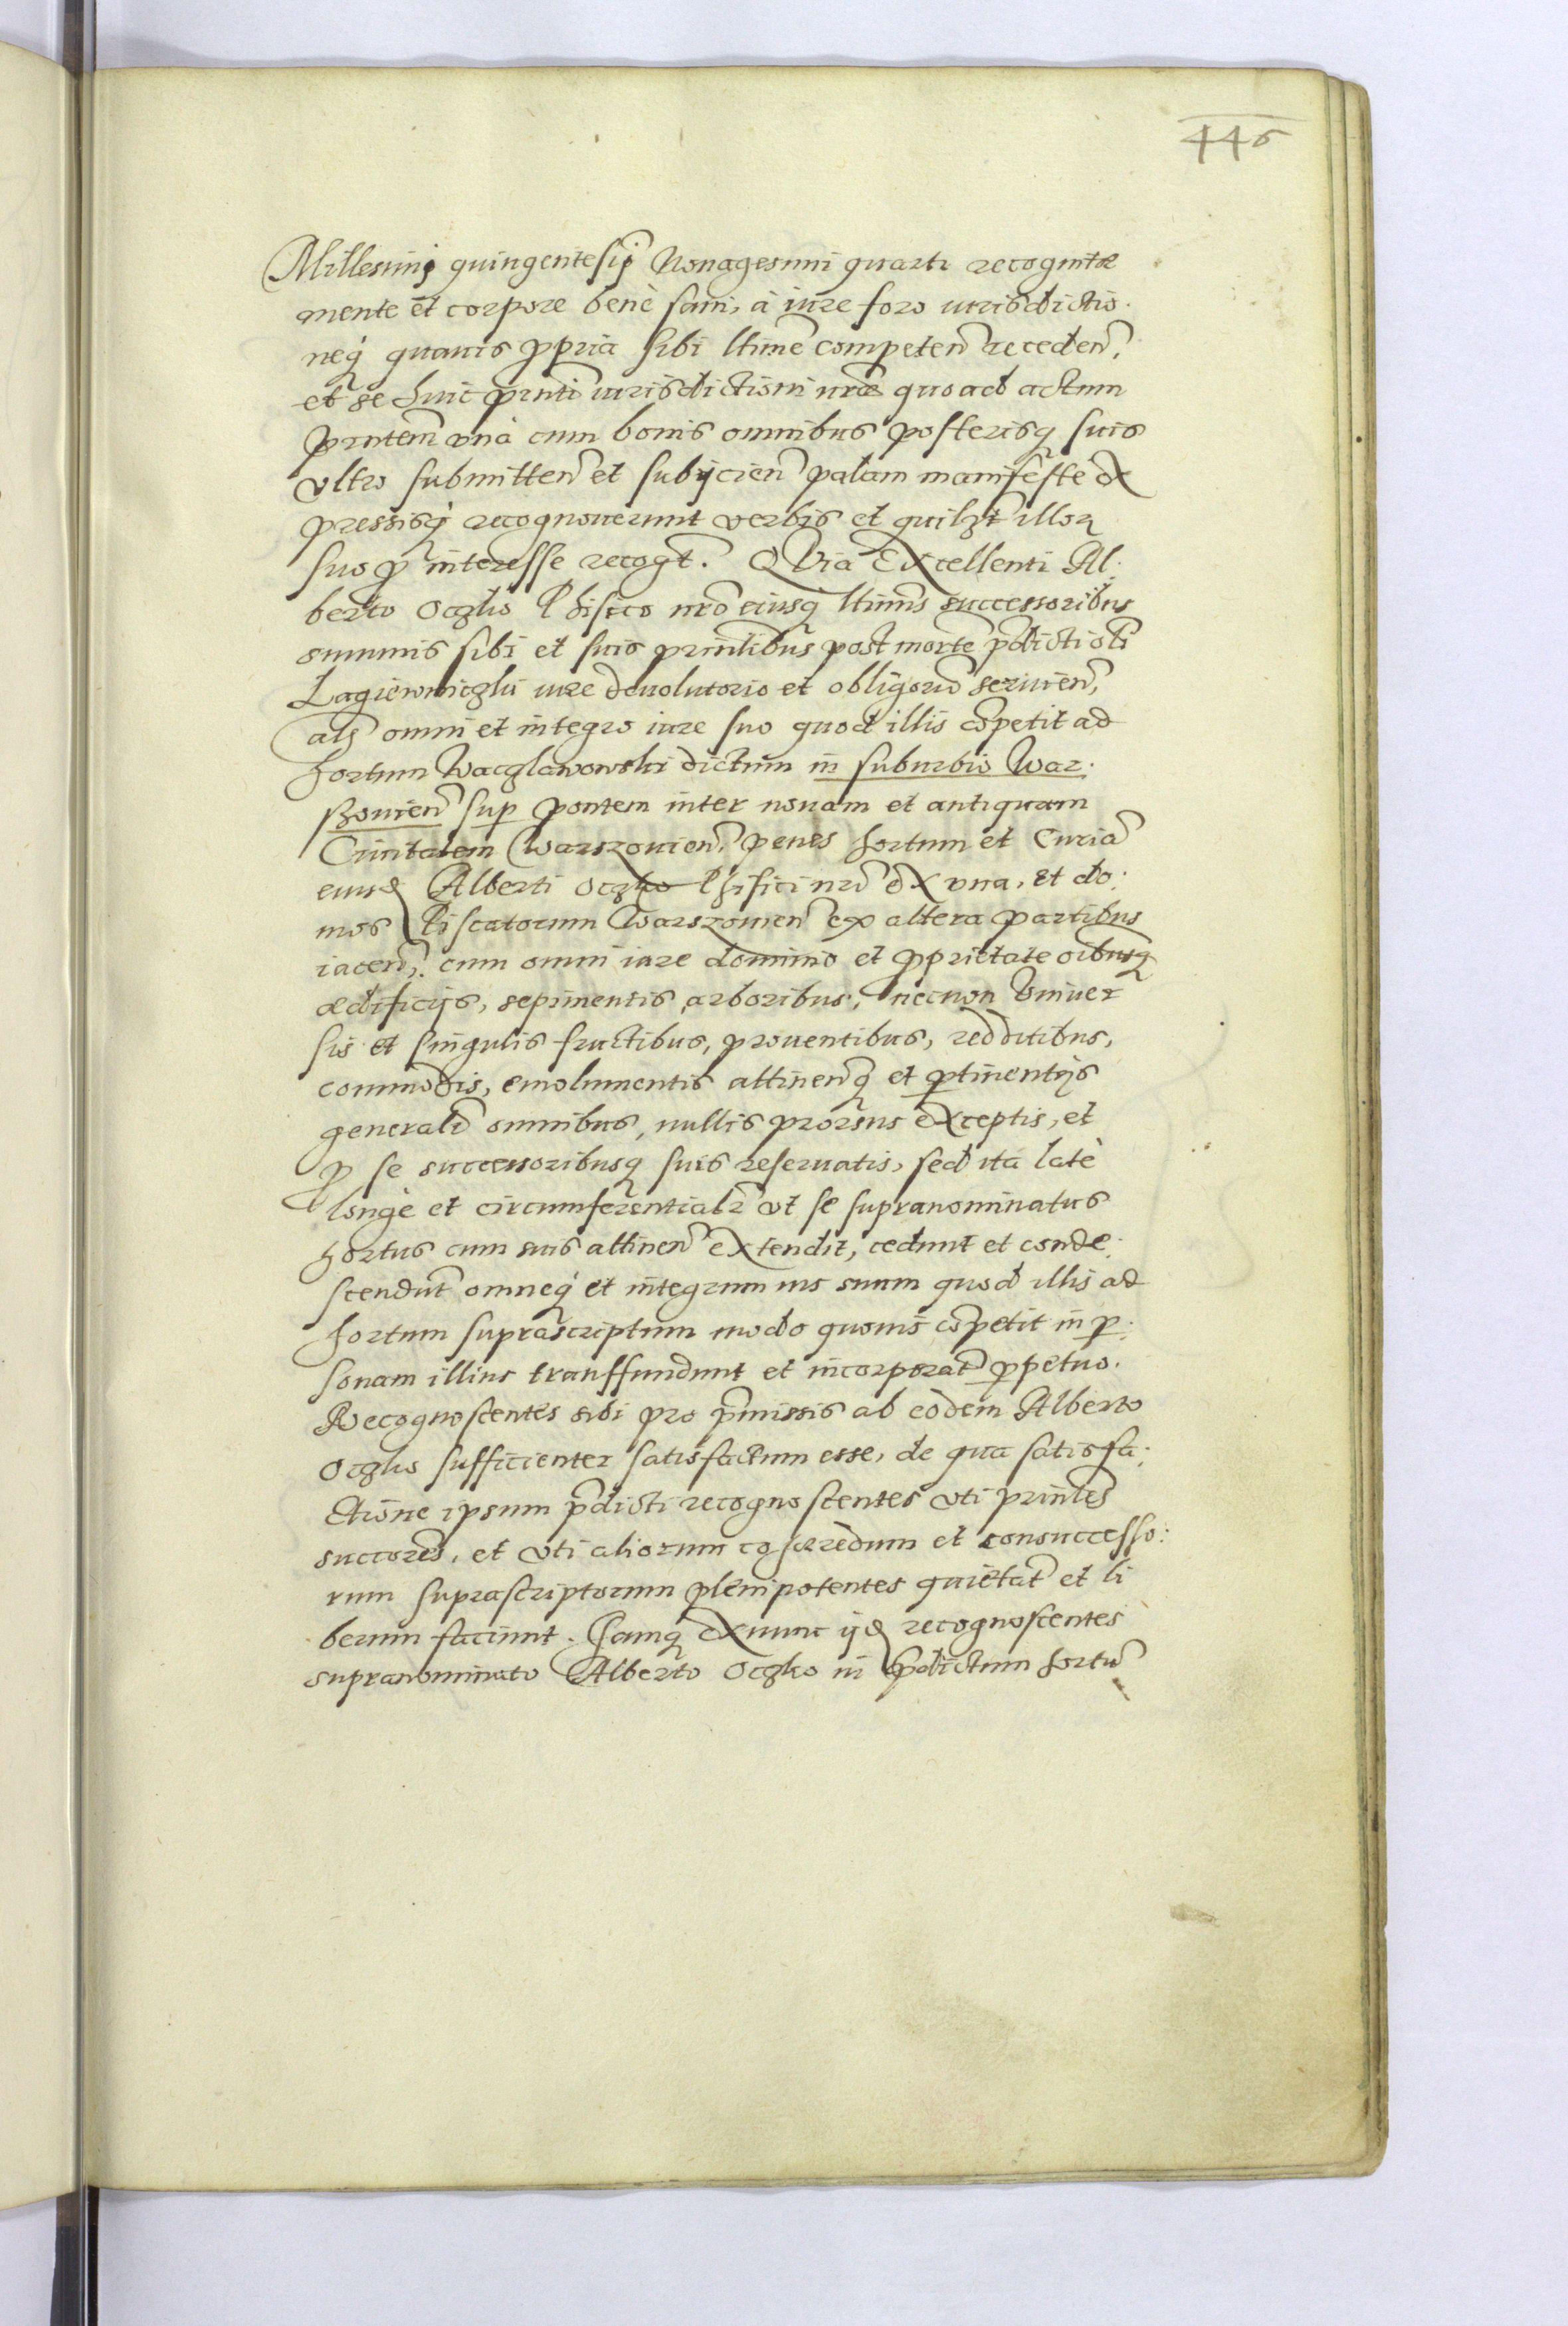 446
Millesimi quingentesi͠j Nonagesimi quarti recognitæ
mente et corpore benè sani, à iure foro iurisdictio:
neq́ quauis ꝓpria sibi ltime͠ competen͠ receden͠,
et se huic pn͠ti iurisdictioni nr͠æ quoad actum
pn͠tem vnà cum bonis omnibus posterisq́ suis
vltro submitten͠ et subijcien͠ palam manifeste ex
pressisq́ recognouerunt verbis et quilꝫt illoꝝ
suo ꝓ interesse recogt͠. QVia Excellenti Al:
berto Oczko Phisico nr͠o eiusq́ ltimis͠ successoribus
summis sibi et suis prin͠libus post morte͠ p͠dicti oli͠
Lagiewniczki iure deuolutorio et obligorio͠ seruien͠,
als͠ omni et integro iure suo quod illis co͠petit ad
hortum Waczlawowski dictum in suburbio War:
szouien͠ sup͠ pontem inter nouam et antiquam
Ciuitatem Warszouien͠, penes hortum et Curia͠
eiusd͠ Alberti Oczko Phisici nr͠i ex vna, et do:
mos Piscatorum Warszouien͠ ex altera partibus
iacen͠, cum omni iure dominio et ꝓprietate oi͠busq́
ædificijs, sepimentis, arboribus, necnon Vniuer
sis et singulis fructibus, prouentibus, redditibus,
commodis, emolumentis attinen͠q́ et ꝑtinentijs
generali͠ omnibus, nullis prorsus exceptis, et
ꝓ se successoribusq́ suis reseruatis, sed ita latè
longè et circumferentialr͠ vt se supranominatus
hortus cum suis attinen͠ extendit, cedunt et conde:
scendu͠t omneq́ et integrum ius suum quod illis ad
hortum suprascriptum modo quouis co͠petit in ꝑ:
sonam illius transfundunt et incorporat͠ ꝑpetuo.
Recognoscentes sibi pro p͠missis ab eodem Alberto
Oczko sufficienter satisfactum esse, de qua satisfa:
ctione ipsum p͠dicti recognoscentes vti prin͠les
succores͠, et vti aliorum cohæredum et consuccesso:
rum suprascriptorum plenipotentes quietat͠ et li
berum faciunt. Iamq́ exnunc ijd͠ recognoscentes
supranominato Alberto Oczko in p͠dictum hortu͠